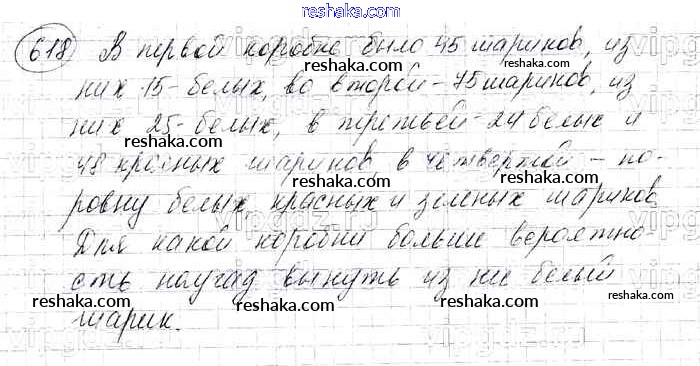 618) В первой коробке было 45 шариков, из
них 15 - белых, во второй - 75 шариков, из
них 25 - белых, в третьей - 24 белых и
48 красных шариков, в четвертой - по-
ровну белых, красных и зеленых шариков.
Для какой коробки больше вероятно
сть наугад вынуть из нее белый
шарик.
reshaka.com
reshaka.com
reshaka.com
reshaka.com
reshaka.com
reshaka.com
reshaka.com
reshaka.com
reshaka.com
reshaka.com
reshaka.com